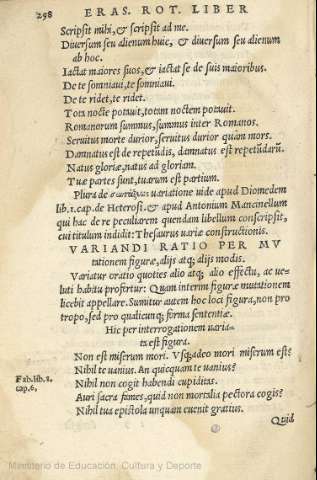 298 ERAS. ROT. LIBER
Scripsit mihi, & scripsit ad me.
Diuersum seu alienum huic, & diuersum seu alienum
ab hoc.
Iactat maiores suos, & iactat se de suis maioribus.
De te somniaui, te somniaui.
De te ridet, te ridet.
Tota nocte potauit, totam noctem potauit.
Romanorum summus, summus inter Romanos.
Seruitus morte durior, seruitus durior quàm mors.
Damnatus est de repetūdis, damnatus est repetūdarū.
Natus gloriæ, natus ad gloriam.
Tuæ partes sunt, tuarum est partium.
Plura de uariatione uide apud Diomedem
lib. 1. cap. de Heterosi. & apud Antonium Mancinellum
qui hac de re peculiarem quendam libellum conscripsit,
cui titulum indidit: Thesaurus uariæ constructionis.
VARIANDI RATIO PER MV
tationem figuræ, alijs atq; alijs modis.
Variatur oratio quoties alio atq; alio effectu, ac ueluti
habitu profertur: Quam interim figuræ mutationem
licebit appellare. Sumitur autem hoc loci figura, non pro
tropo, sed pro qualicunq; forma sententiæ.
Hic per interrogationem uaria-
ta est figura.
Non est miserum mori. Vsq;adeo mori miserum est?
Nihil te uanius. An quicquam te uanius?
Fab. lib. 1.
cap. 6,
Nihil non cogit habendi cupiditas.
Auri sacra fames, quid non mortalia pectora cogis?
Nihil tua epistola unquam euenit gratius.
Quid
Ministerio de Educación, Cultura y Deporte